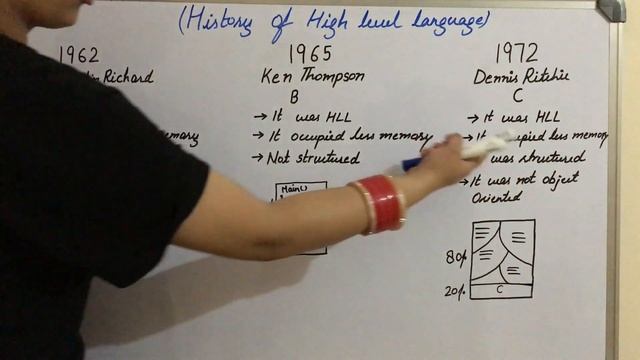 (History of High level language)
1962
Richard
1965
Ken Thompson
B
→ It was HLL
→ It occupied less memory
→ Not structured
Main()
1972
Dennis Ritchie
C
→ It was HLL
→ It less memory
was structured
→ It was not object
Oriented
80%
20%
C